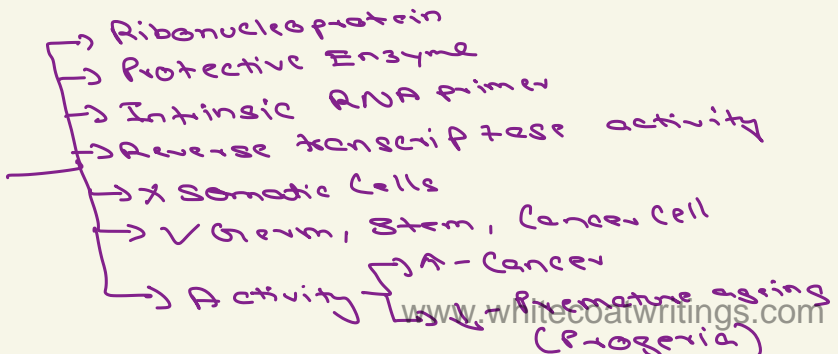 → Ribonucleoprotein
→ Protective Enzyme
→ Intrinsic RNA primer
→ Reverse transcriptase activity
→ X Somatic Cells
→ ✓ Germ, Stem, Cancer Cell
→ Activity
→ ↑ - Cancer
→ ↓ - Premature ageing
(Progeria)
www.whitecoatwritings.com